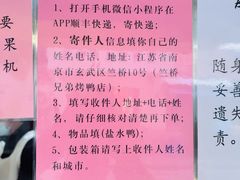 1、打开手机微信小程序在
APP顺丰快递、寄快递;
2、寄件人信息填你自己的
姓名电话, 地址: 江苏省南
京市玄武区竺桥10号 (竺桥
兄弟烤鸭店)
3、填写收件人地址+电话+姓
名, 请仔细核对清楚再下单;
4、物品填 (盐水鸭)
5、包装箱请写上收件人姓名
和城市。
要
果
机
随身
妥善
遗失
责